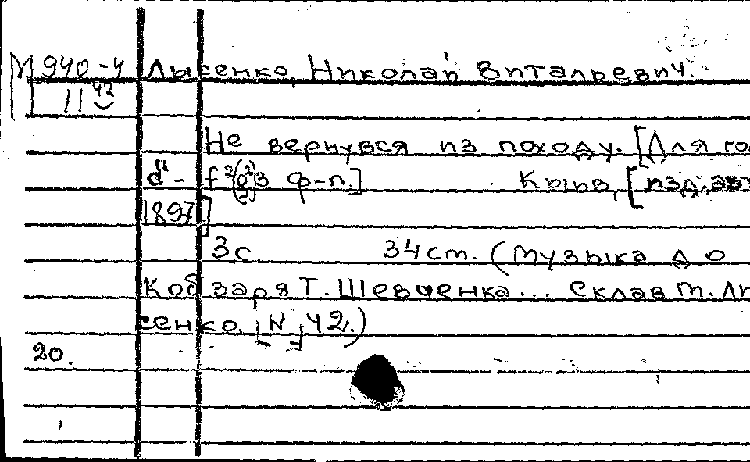 М 940-4 Лысенко, Николай Витальевич.
11 42
Не вернувся из походу. [Для го
d" - f²(g²)з ф-п.] Кыив, [изд. авт
1897]
3с 34 ст. (Музыка до
Кобзаря Т. Шевченка... Склав М. Лы
сенко [N 42.)
20.